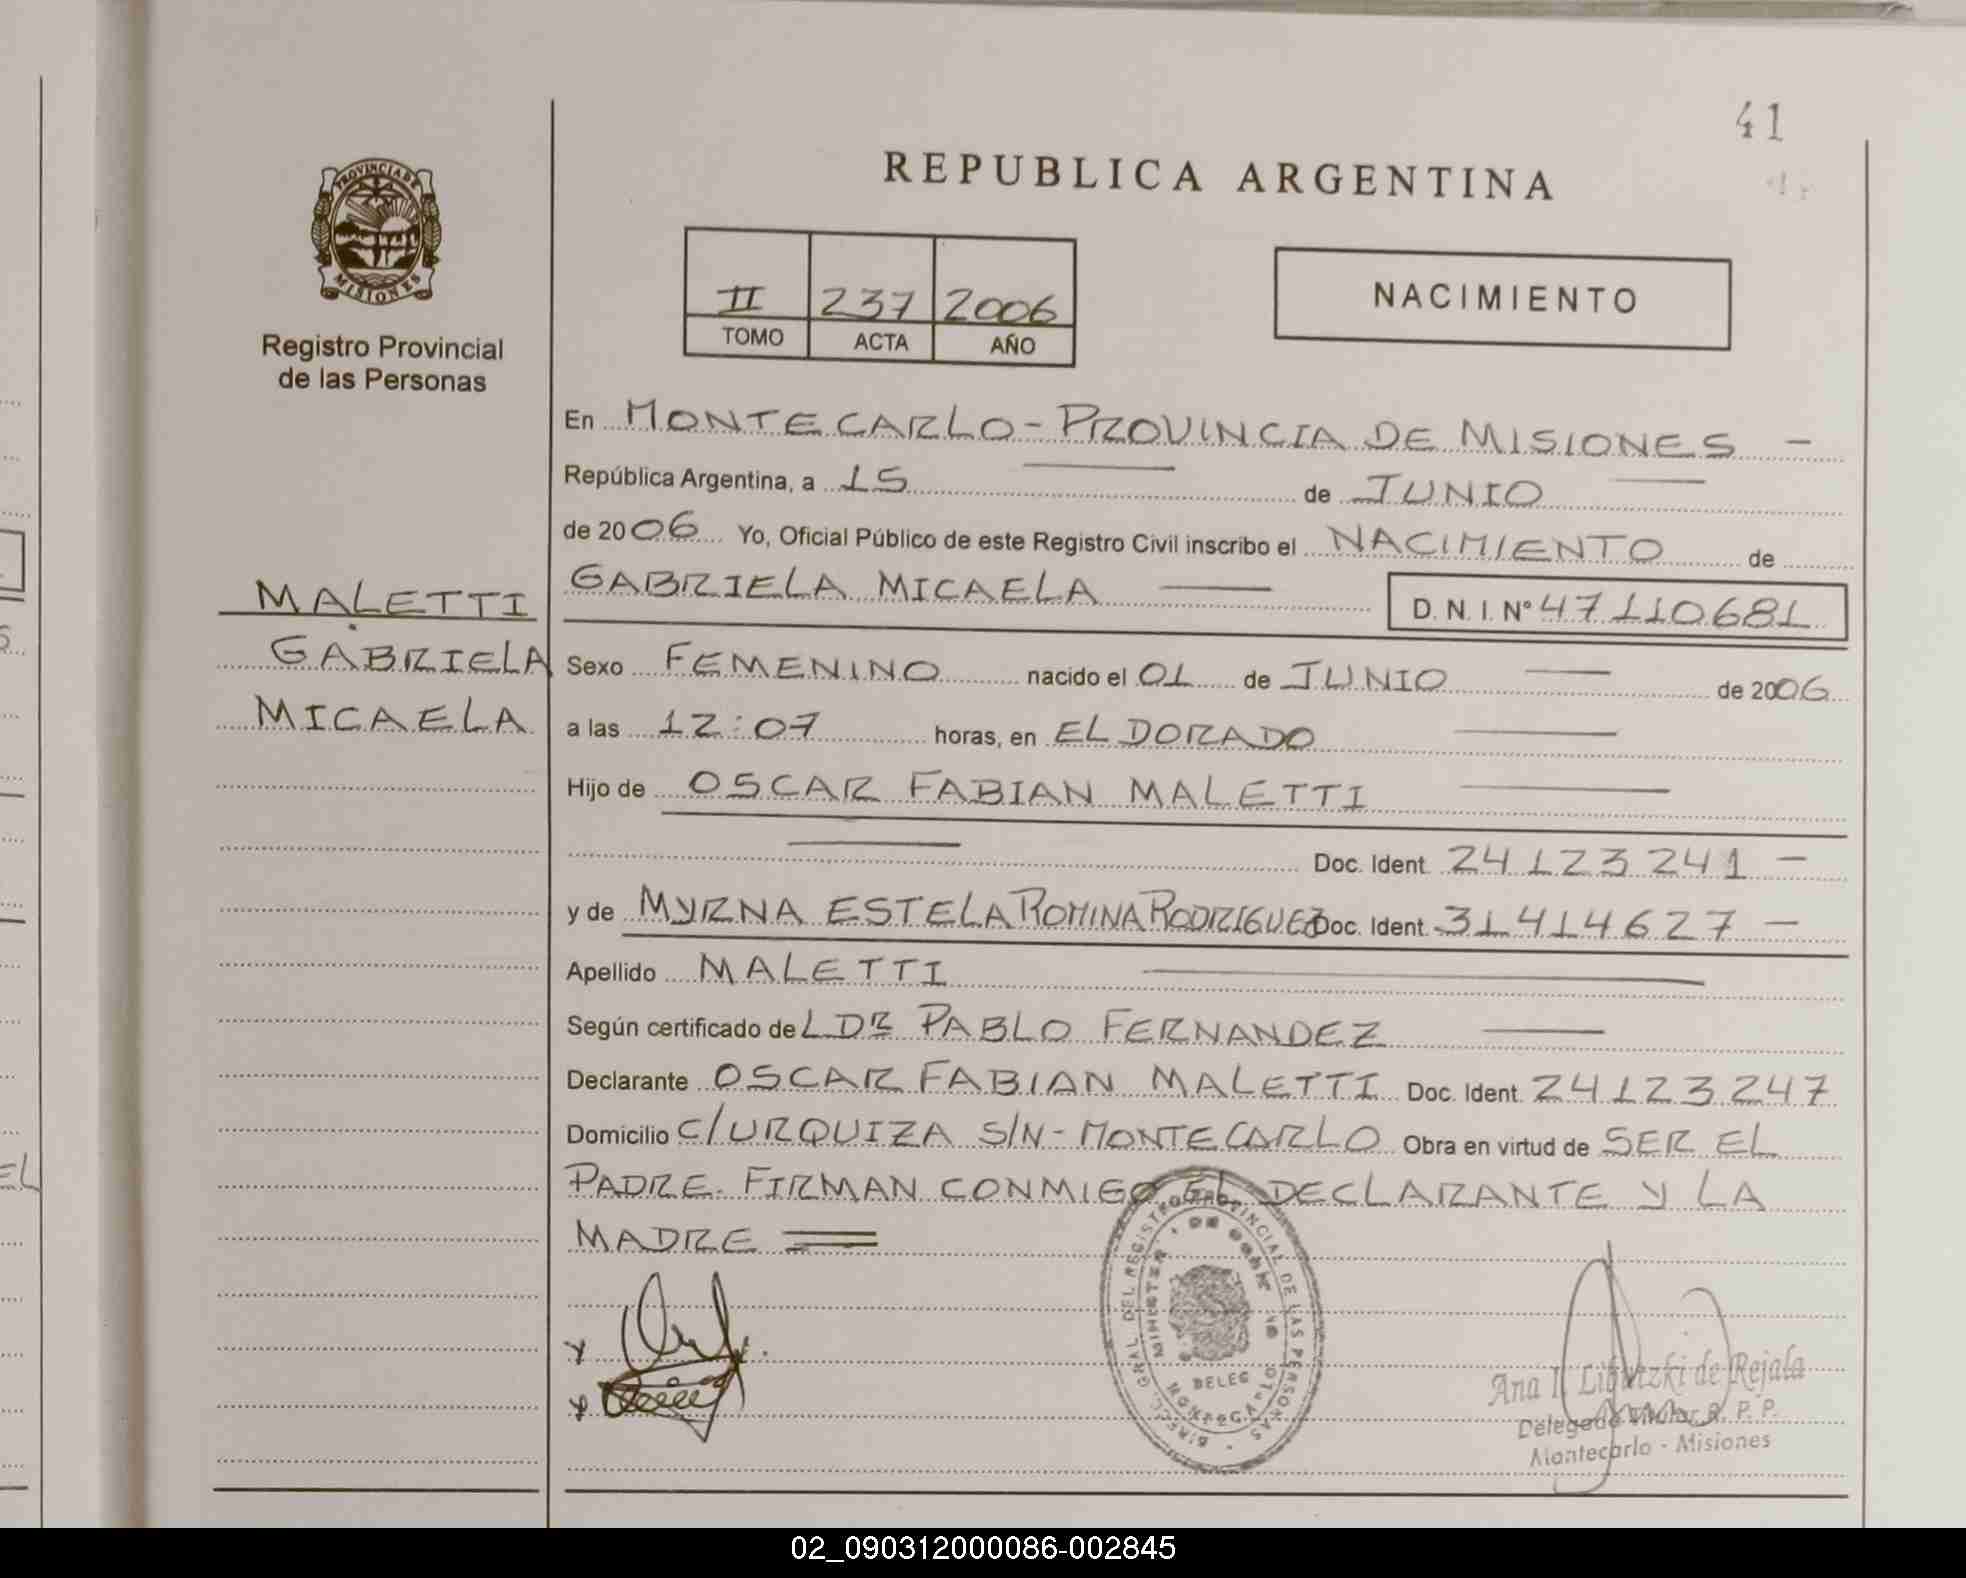 41
PROVINCIA DE
MISIONES
Registro Provincial
de las Personas
REPUBLICA ARGENTINA
II 237 2006
TOMO ACTA AÑO
NACIMIENTO
En MONTECARLO - PROVINCIA DE MISIONES -
República Argentina, a 15 de JUNIO
de 2006 Yo, Oficial Público de este Registro Civil inscribo el NACIMIENTO de
GABRIELA MICAELA D. N. I. Nº 47110681
MALETTI
GABRIELA
MICAELA
Sexo FEMENINO nacido el 01 de JUNIO de 2006
a las 12:07 horas, en ELDORADO
Hijo de OSCAR FABIAN MALETTI
Doc. Ident. 24123241 -
y de MYRNA ESTELA ROMINA RODRIGUEZ Doc. Ident. 31414627 -
Apellido MALETTI
Según certificado de L DR PABLO FERNANDEZ
Declarante OSCAR FABIAN MALETTI Doc. Ident. 24123247
Domicilio C/URQUIZA S/N - MONTECARLO Obra en virtud de SER EL
PADRE. FIRMAN CONMIGO EL DECLARANTE Y LA
MADRE
DIREC. GRAL DEL REGISTRO PROVINCIAL DE LAS PERSONAS
DELEG
MONTECARLO
Ana I. de Rejala
Delegado Titular R. P. P.
Montecarlo - Misiones
02_090312000086-002845